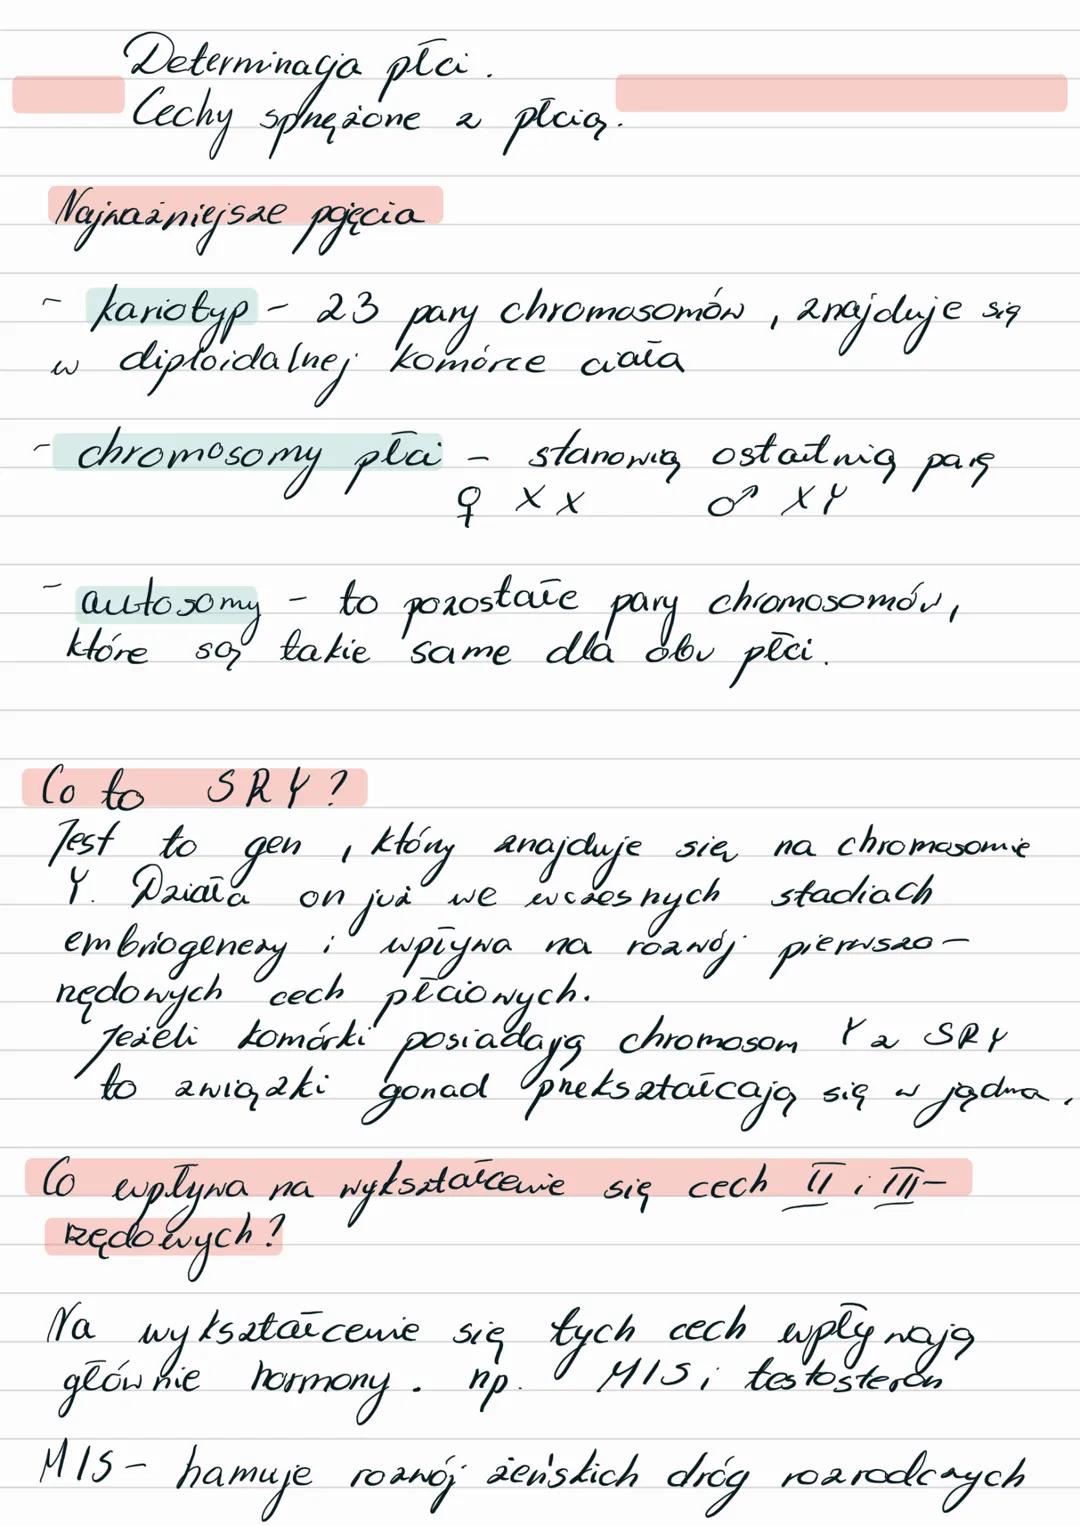 Determinacja płci.
Cechy sprzężone z płcią.
Najważniejsze pojęcia
- kariotyp - 23 pary chromosomów, znajduje się
w diploidalnej komórce ciała
- chromosomy płci - stanowią ostatnią parę
♀ XX ♂ XY
- autosomy - to pozostałe pary chromosomów,
które są takie same dla obu płci.
Co to SRY?
Jest to gen, który znajduje się na chromosomie
Y. Działa on już we wczesnych stadiach
embriogenezy i wpływa na rozwój pierwszo-
rzędowych cech płciowych.
Jeżeli komórki posiadają chromosom Y z SRY
to związki gonad przekształcają się w jądra.
Co wpływa na wykształcenie się cech II i III-
rzędowych?
Na wykształcenie się tych cech wpływają
głównie hormony. np. MIS i testosteron
MIS - hamuje rozwój żeńskich dróg rozrodczych